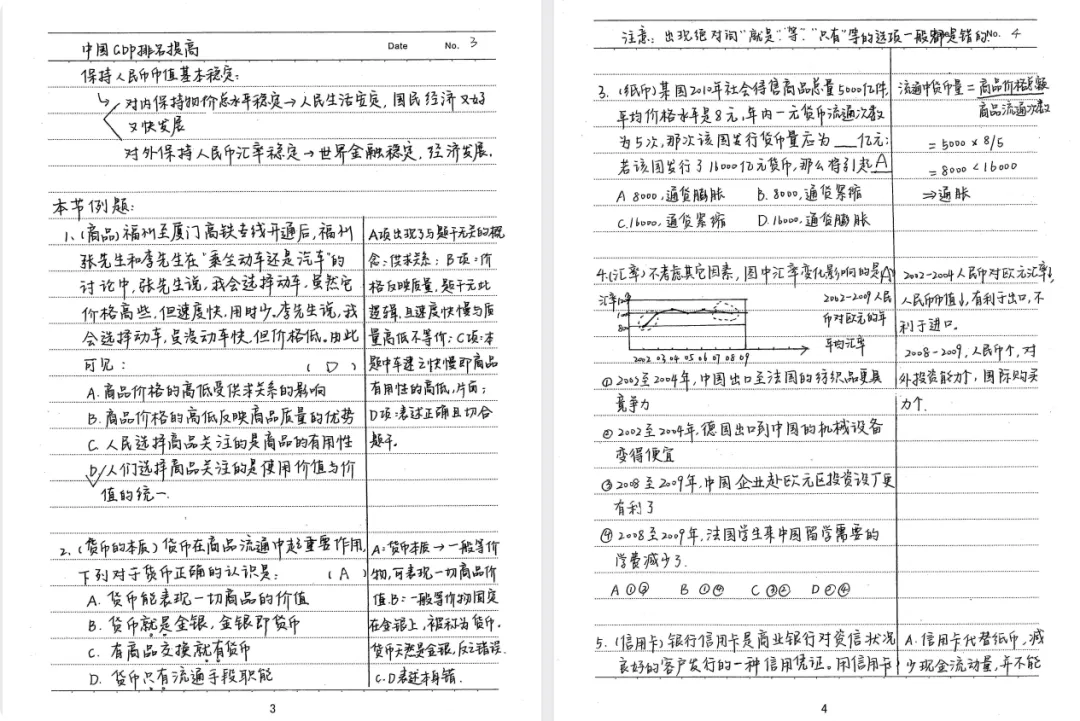 Date No. 3
中国GDP排名提高
保持人民币币值基本稳定:
对内保持物价总水平稳定→人民生活安定,国民经济又好
又快发展
对外保持人民币汇率稳定→世界金融稳定,经济发展.
本节例题:
1、(商品)福州至厦门高铁专线开通后,福州
张先生和李先生在"乘坐动车还是汽车"的
讨论中,张先生说,我会选择动车,虽然它
价格高些,但速度快,用时少。李先生说,我
会选择动车,虽没动车快,但价格低。由此
可见: (D)
A. 商品价格的高低受供求关系的影响
B. 商品价格的高低反映商品质量的优势
C. 人民选择商品关注的是商品的有用性
D. 人们选择商品关注的是使用价值与价
值的统一.
A项出现了与题干无关的概
念:供求关系;B项:价
格反映质量,题干无此
逻辑,且速度快慢与质
量高低不等价;C项:本
题中车速之快慢即商品
有用性的高低,片面;
D项:表述正确且切合
题干.
2、(货币的本质)货币在商品流通中起重要作用,
下列对于货币正确的认识是: (A)
A. 货币能表现一切商品的价值
B. 货币就是金银,金银即货币
C. 有商品交换就有货币
D. 货币只有流通手段职能
A:货币本质→一般等价
物,可表现一切商品价
值.B:一般等价物固定
在金银上,被称为货币.
货币天然是金银,反之错误.
C.D表述本身错.
3
注意:出现绝对词"就是"、等、"只有"等的选项一般都是错的 No. 4
3.(纸币)某国2010年社会待售商品总量5000亿件,
平均价格水平是8元,年内一元货币流通次数
为5次,那次该国发行货币量应为__亿元;
若该国发行了16000亿元货币,那么将引起A
A 8000,通货膨胀 B. 8000,通货紧缩
C.16000,通货紧缩 D.16000,通货膨胀
流通中货币量=商品价格总额
商品流通次数
=5000×8/5
=8000<16000
⇒通胀
4.(汇率)不考虑其它因素,图中汇率变化影响的是(A)
汇率
1
80
2002 03 04 05 06 07 08 09
2002-2009人民
币对欧元的年
平均汇率
①2002至2004年,中国出口至法国的纺织品更具
竞争力
②2002至2004年,德国出口到中国的机械设备
变得便宜
③2008至2009年,中国企业赴欧元区投资设厂更
有利了
④2008至2009年,法国学生来中国留学需要的
学费减少了.
A ①③ B ①④ C ②③ D ②④
2002-2004人民币对欧元汇率↓,
人民币币值↓,有利于出口,不
利于进口。
2008-2009,人民币↑,对
外投资能力↑,国际购买
力↑.
5.(信用卡)银行信用卡是商业银行对资信状况
良好的客户发行的一种信用凭证。用信用卡
A. 信用卡代替纸币,减
少现金流动量,并不能
4